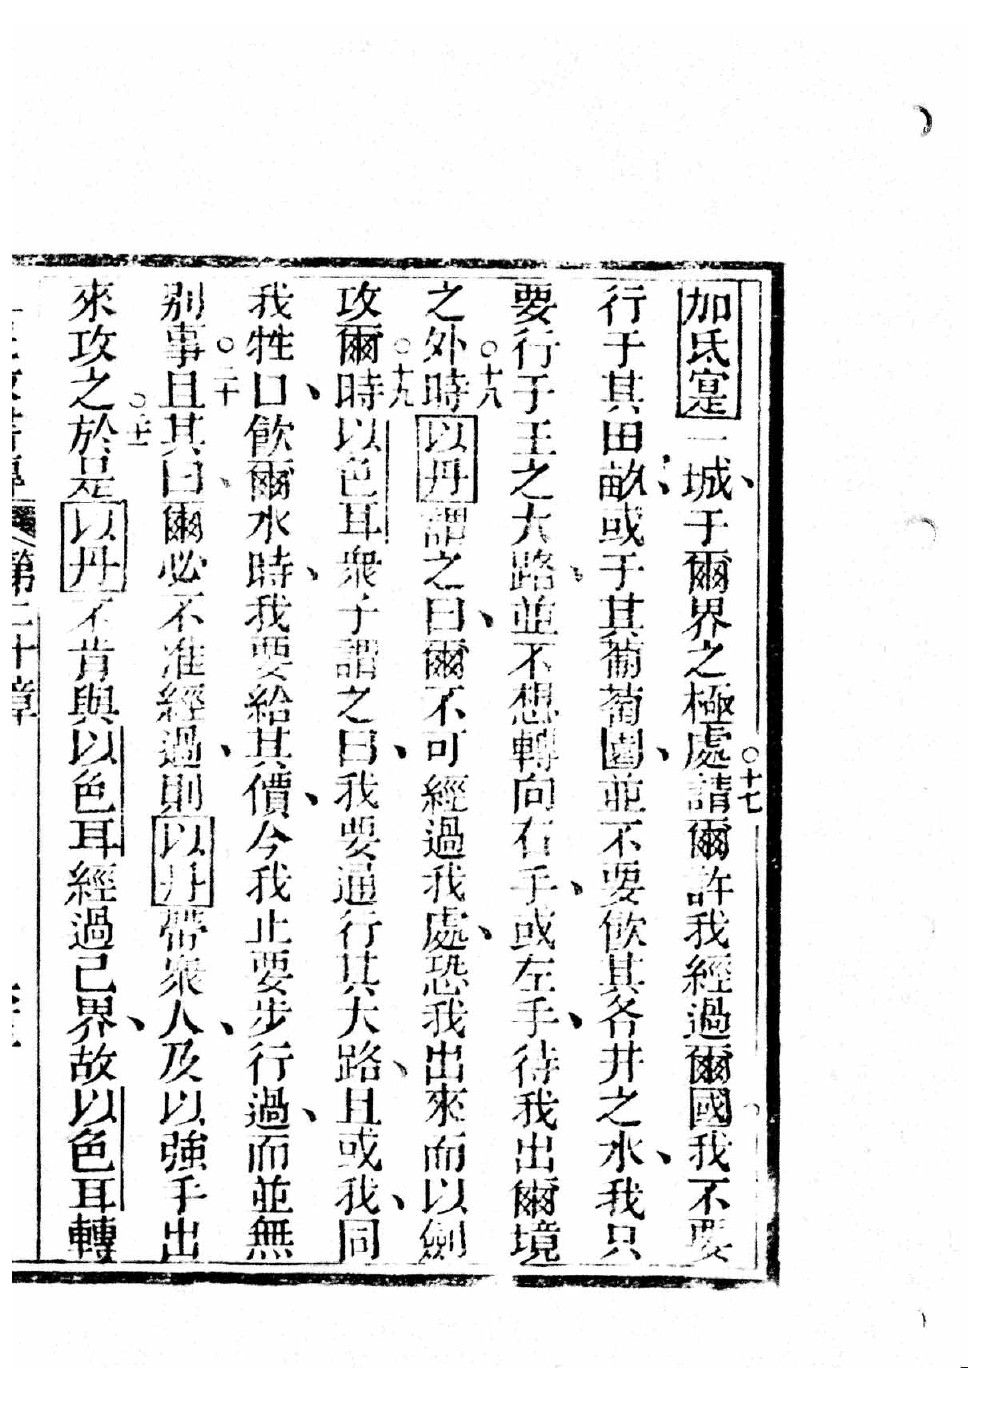 加氐寔一城、于爾界之極處○十七請爾許我經過爾國我不要
行于其田畝、或于其葡萄園、並不要飲其各井之水、我只
要行于王之大路、並不想轉向右手、或左手、待我出爾境
之外○十九時以丹謂之曰、爾不可經過我處、恐我出來而以劍
攻爾○十九時以色耳衆子謂之曰、我要通行其大路、且或我、同
我牲口、飲爾水時、我要給其價、今我止要步行過、而並無
別事○二十且其曰、爾必不准經過、則以丹帶衆人、及以強手出
來攻之○二十一於是以丹不肯與以色耳經過己界、故以色耳轉
第二十章